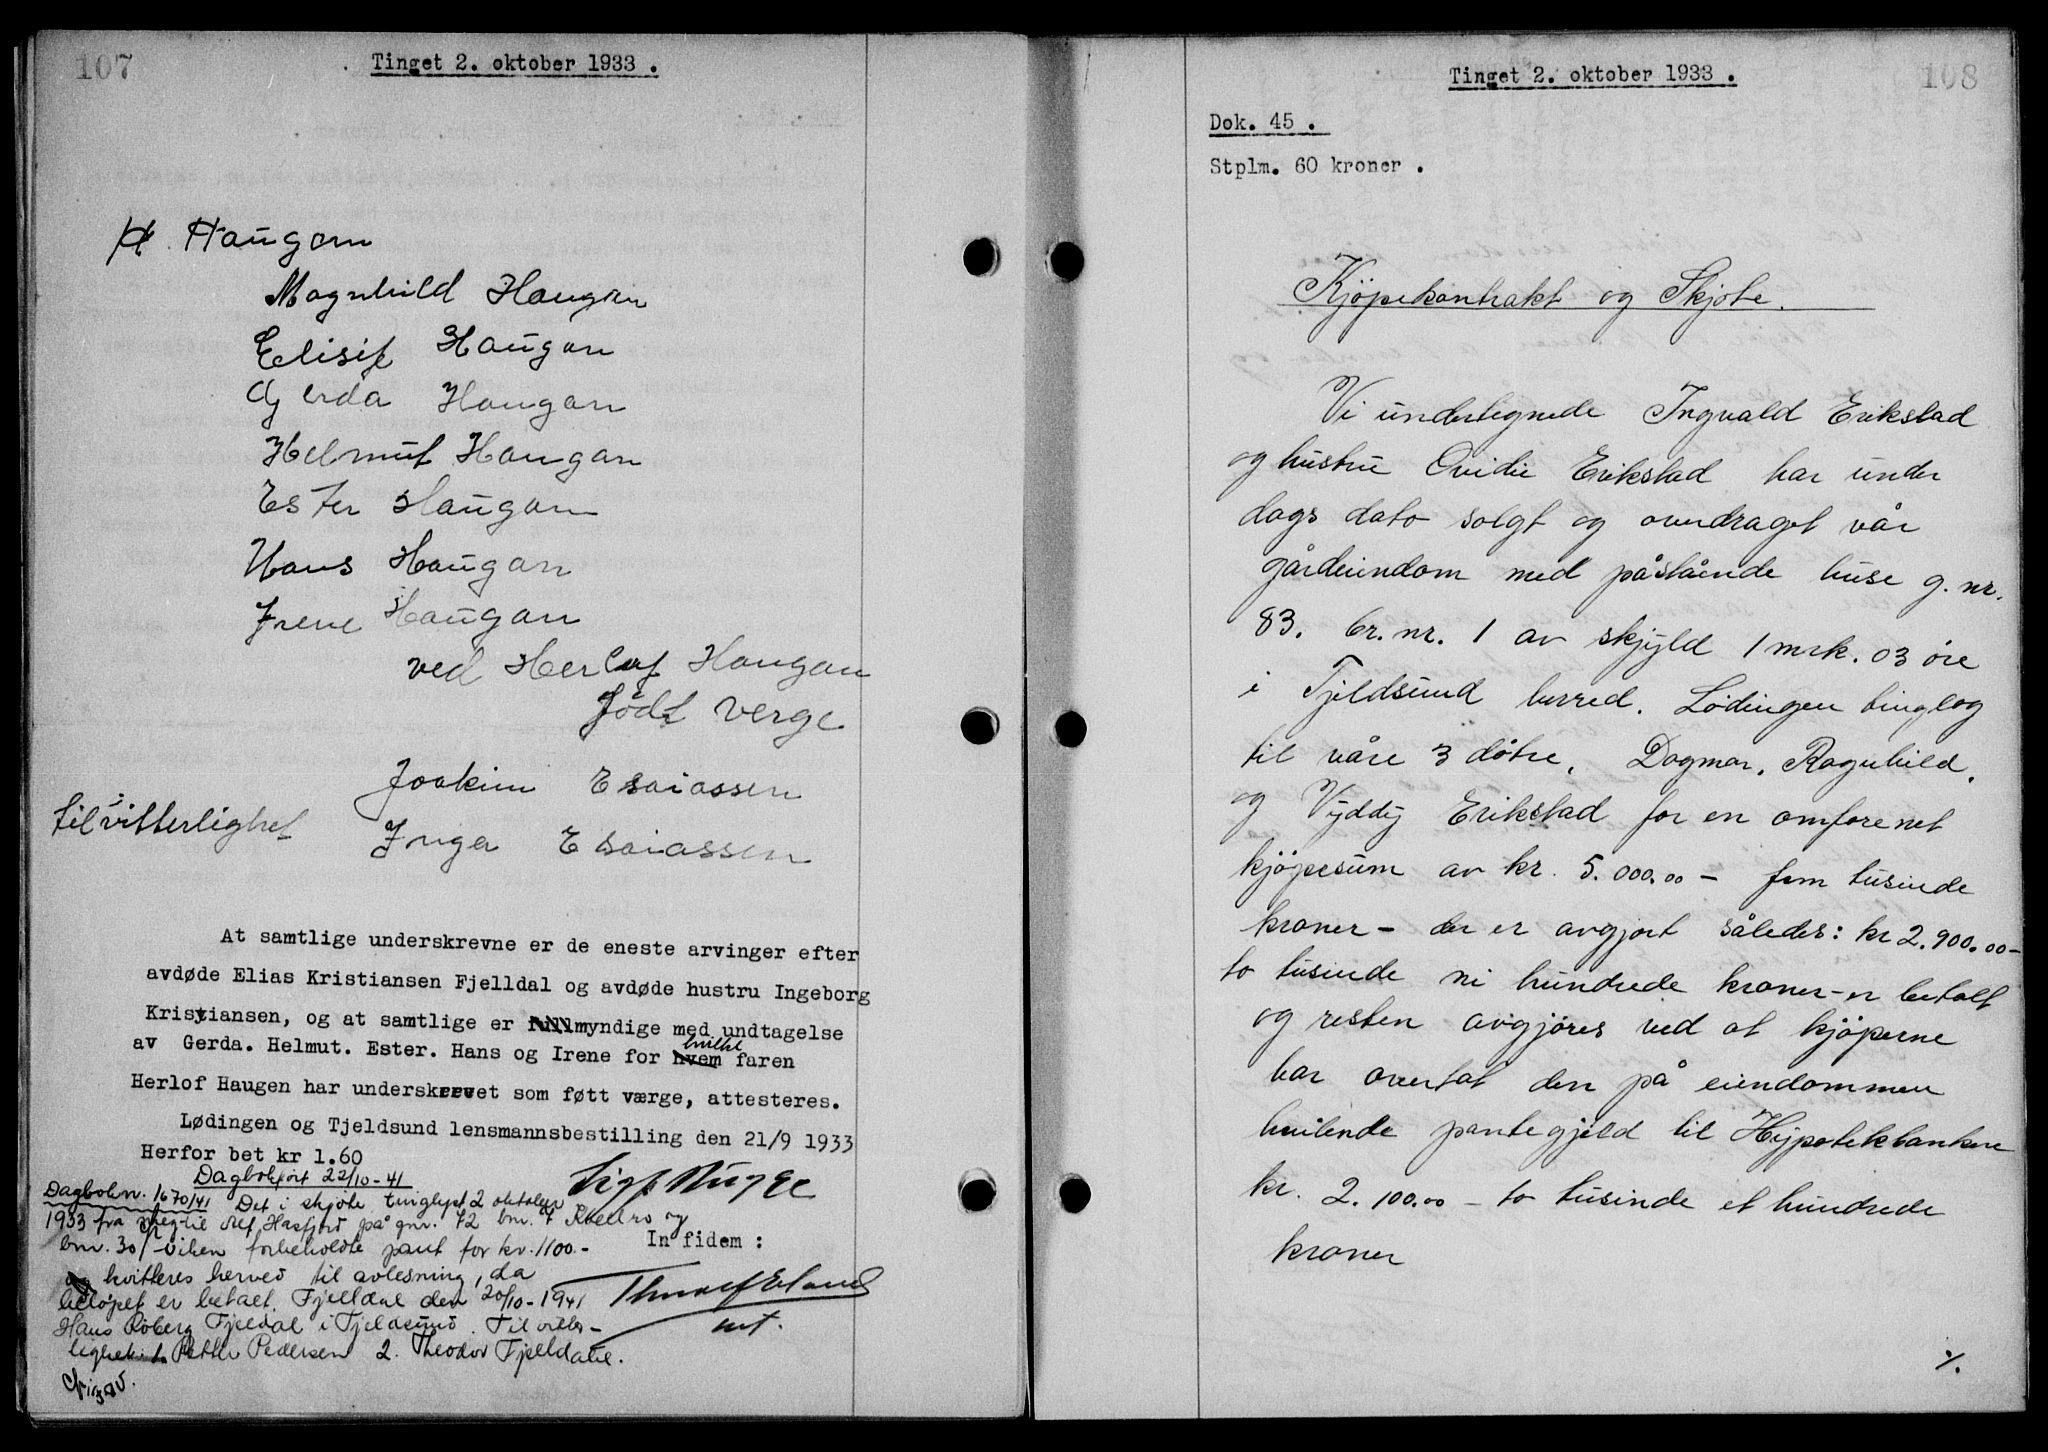 107
Tinget 2. oktober 1933 .
Haugan
Magnhild Haugan
Elisif Haugan
Gerda Haugan
Helmut Haugan
Ester Haugan
Hans Haugan
Irene Haugan
ved Herlof Haugan
födt verge
Joakim Esaiassen
til vitterlighet
Inga Esaiassen
At samtlige underskrevne er de eneste arvinger efter
avdøde Elias Kristiansen Fjelldal og avdøde hustru Ingeborg
Kristiansen, og at samtlige er myndige med undtagelse
av Gerda. Helmut. Ester. Hans og Irene for hvem hvilke faren
Herlof Haugen har underskrevet som føtt værge, attesteres.
Lødingen og Tjeldsund lensmannsbestilling den 21/9 1933
Herfor bet kr 1.60
Dagbokført 22/10-41
Dagbokn. 1670/41 Det i skjöte tinglyst 2 oktober
1933 fra meg til Alf Hasfjord på gnr. 72 bnr. 7 og
bnr. 30 forbeholdte pant for kr. 1100.-
kvitteres herved til avlesning, da
belöpet er betalt. Fjelldal den 20/10-1941
Hans Röberg Fjeldal i Tjeldsund. Til vitter-
lighet: 1. Petter Pedersen 2. Theodor Fjelldal.
In fidem :
108
Tinget 2. oktober 1933 .
Dok. 45 .
Stplm. 60 kroner .
Kjöpekontrakt og Skjöte.
Vi undertegnede Ingvald Erikstad
og hustru Ovidie Erikstad har under
dags dato solgt og overdraget vår
gårdeiendom med påstående huse g. nr.
83. br. nr. 1 av skjyld 1 mrk. 03 öre
i Tjeldsund herred. Lödingen tinglag
til våre 3 dötre, Dagmar, Ragnhild,
og Vyddy Erikstad for en omforenet
kjöpesum av kr. 5.000.00 - fem tusinde
kroner - der er avgjort således: kr 2.900.00 -
to tusinde ni hundrede kroner - er betalt
og resten avgjöres ved at kjöperne
har overtat den på eiendommen
hvilende pantegjeld til Hypotekbanken
kr. 2.100.00 - to tusinde et hundrede
kroner
%.